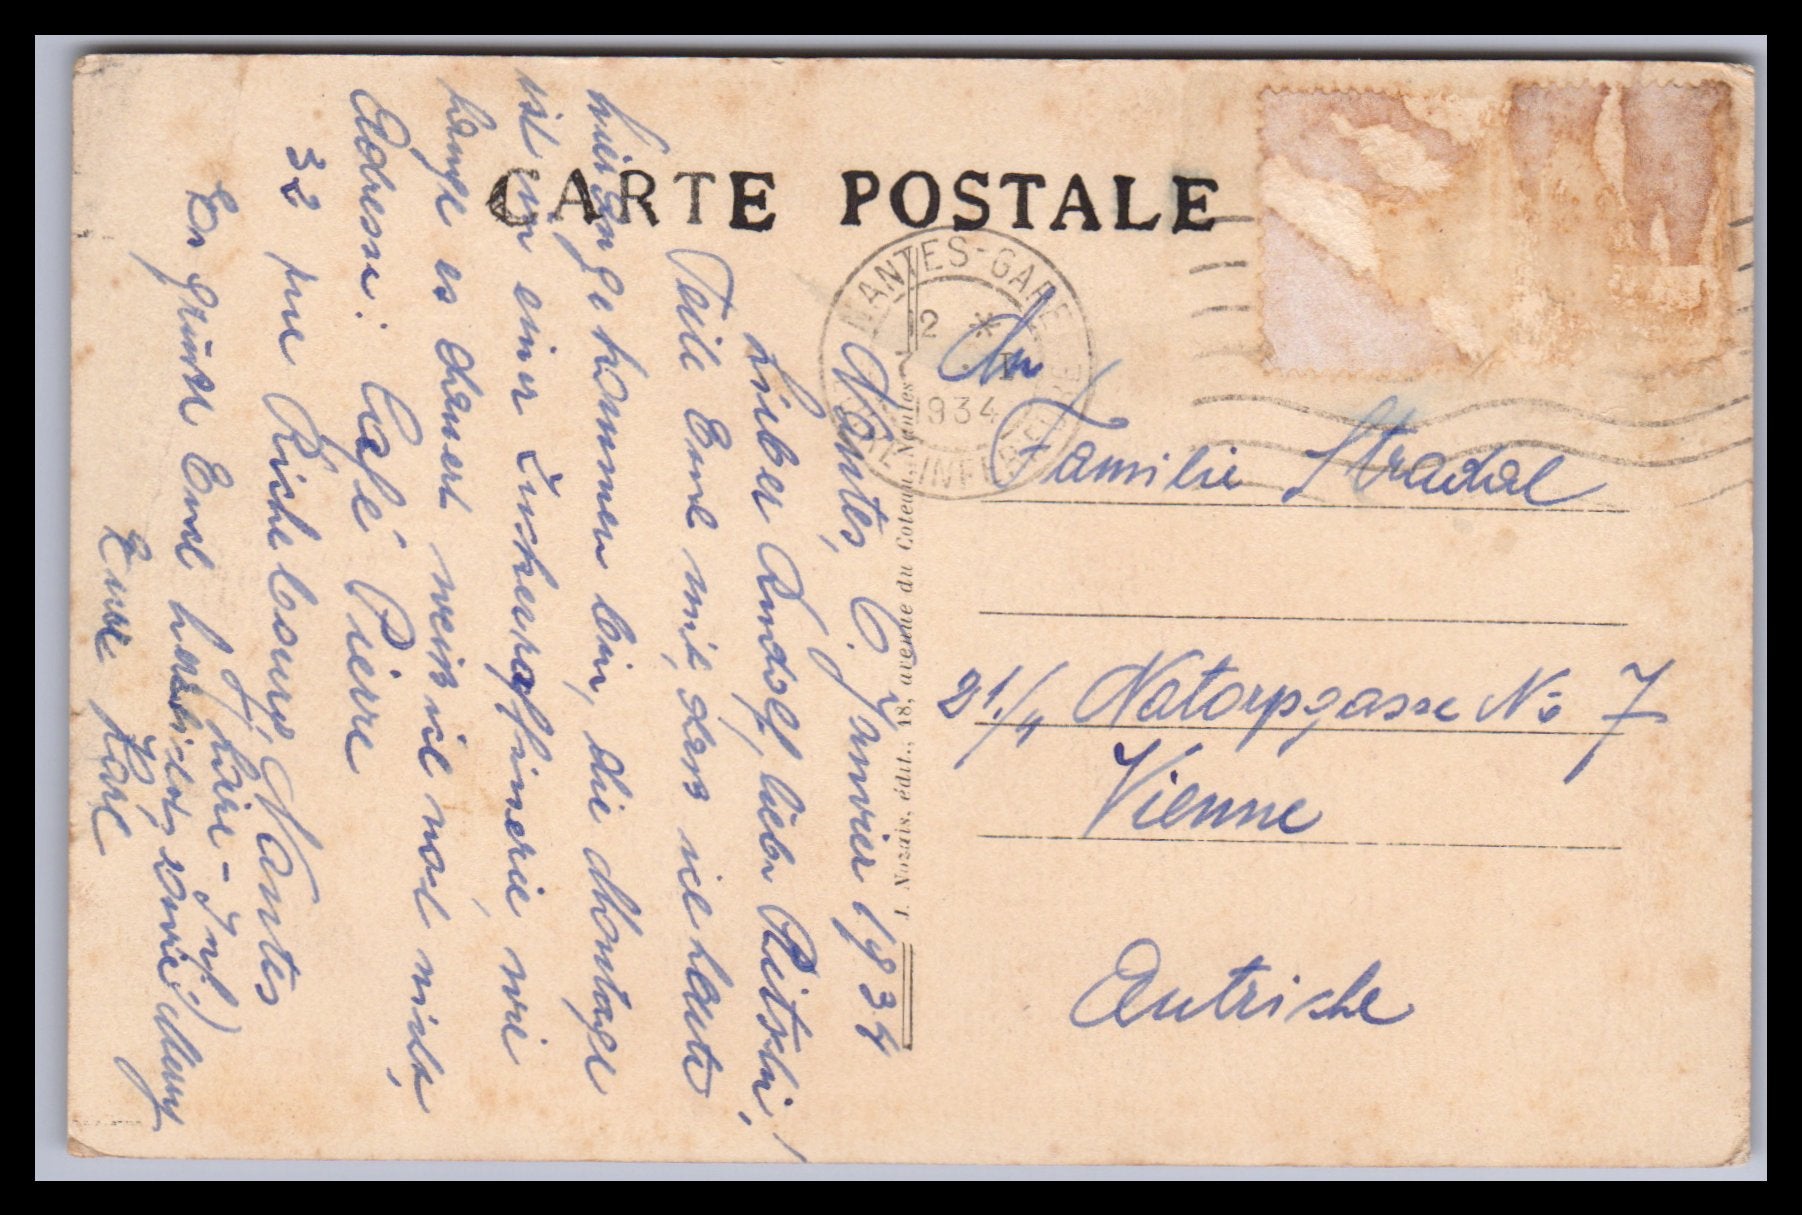 CARTE POSTALE
NANTES-GARE
2 * I
1934
LOIRE INFÉRIEURE
J. Nozais, édit., 18, avenue du Coteau, Nantes
An
Familie Stradal
21./11 Natorpgasse No 7
Vienne
Autriche
Nantes, 2. Janvier 1934
Lieber Rudolf, liebe Rietschi!
Teile Euch mit, dass ich heute
hier angekommen bin, die Montage
ist in einer Zuckerraffinerie, wie
lange es dauert weiss ich noch nicht,
Adresse: Café Pierre
32 rue Riche bourg, Nantes
Loire-Inf.)
Es grüsst Euch herzlichst, sowie Mumy
Euer Karl